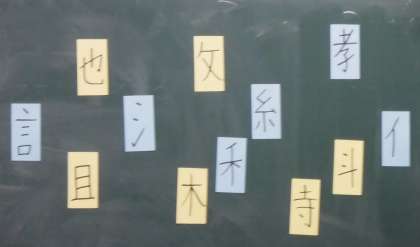 言
也
且
氵
攵
木
禾
糸
寺
孝
斗
亻